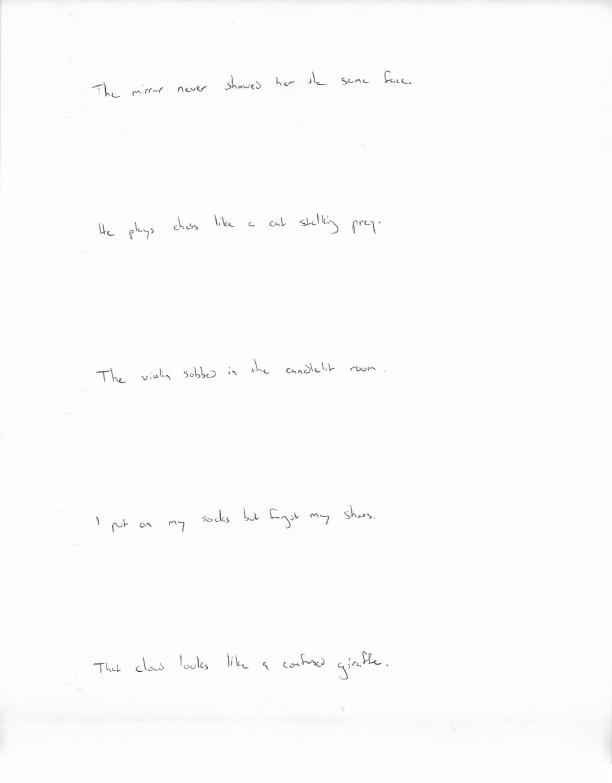 The mirror never showed her the same face.
He plays chess like a cat stalking prey.
The violin sobbed in the candlelit room.
I put on my socks but forgot my shoes.
That cloud looks like a confused giraffe.